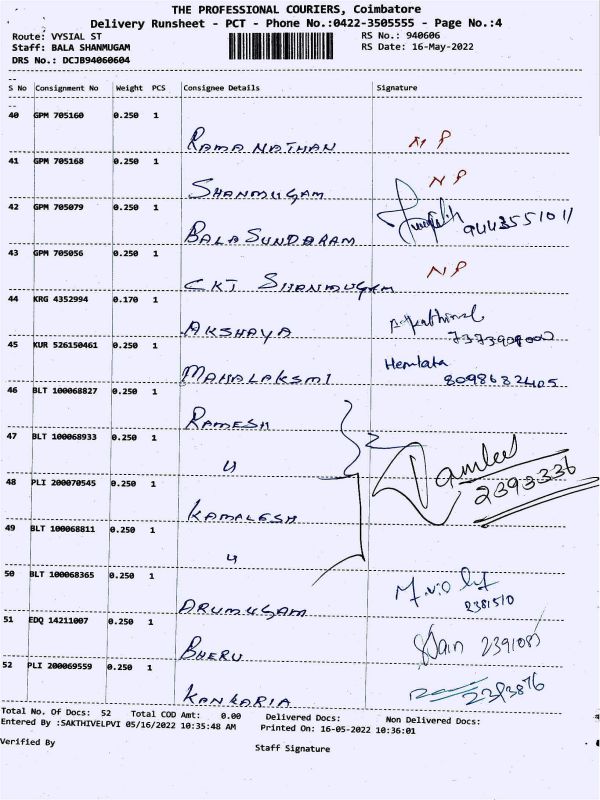 THE PROFESSIONAL COURIERS, Coimbatore
Delivery Runsheet - PCT - Phone No.:0422-3505555 - Page No.:4
Route: VYSIAL ST RS No.: 940606
Staff: BALA SHANMUGAM RS Date: 16-May-2022
DRS No.: DCJB94060604
S No Consignment No Weight PCS Consignee Details Signature
40 GPM 705160 0.250 1
RAMANATHAN NP
41 GPM 705168 0.250 1
SHANMUGAM NP
42 GPM 705079 0.250 1
BALASUNDARAM 9443551011
43 GPM 705056 0.250 1
CKT SHANMUGAM NP
44 KRG 4352994 0.170 1
AKSHAYA
45 KUR 526150461 0.250 1
MAHALAKSMI Hemlata 8098682405
46 BLT 100068827 0.250 1
RAMESH
47 BLT 100068933 0.250 1
"
48 PLI 200070545 0.250 1
KAMALESH 2393336
49 BLT 100068811 0.250 1
"
50 BLT 100068365 0.250 1
ARUMUGAM 2381510
51 EDQ 14211007 0.250 1
BHERU
52 PLI 200069559 0.250 1
KANKARIA 2393876
Total No. Of Docs: 52 Total COD Amt: 0.00 Delivered Docs: Non Delivered Docs:
Entered By :SAKTHIVELPVI 05/16/2022 10:35:48 AM Printed On: 16-05-2022 10:36:01
Verified By Staff Signature